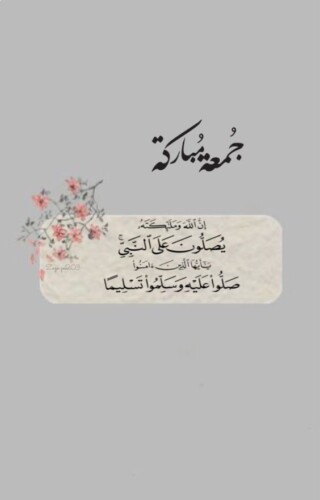 جُمعة مُباركة
إِنَّ ٱللَّهَ وَمَلَٰٓئِكَتَهُۥ
يُصَلُّونَ عَلَى ٱلنَّبِىِّ ۚ
يَٰٓأَيُّهَا ٱلَّذِينَ ءَامَنُوا۟
صَلُّوا۟ عَلَيْهِ وَسَلِّمُوا۟ تَسْلِيمًا